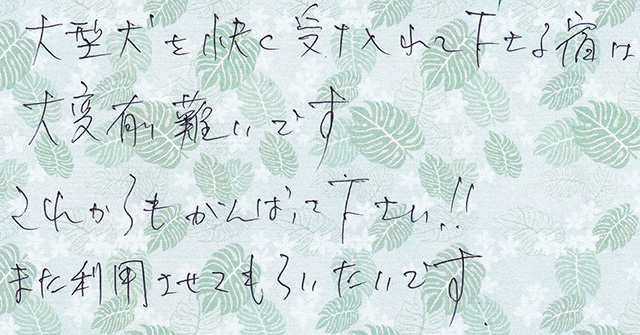 大型犬を快く受け入れて下さる宿は
大変有難いです
これからもがんばって下さい!!
また利用させてもらいたいです